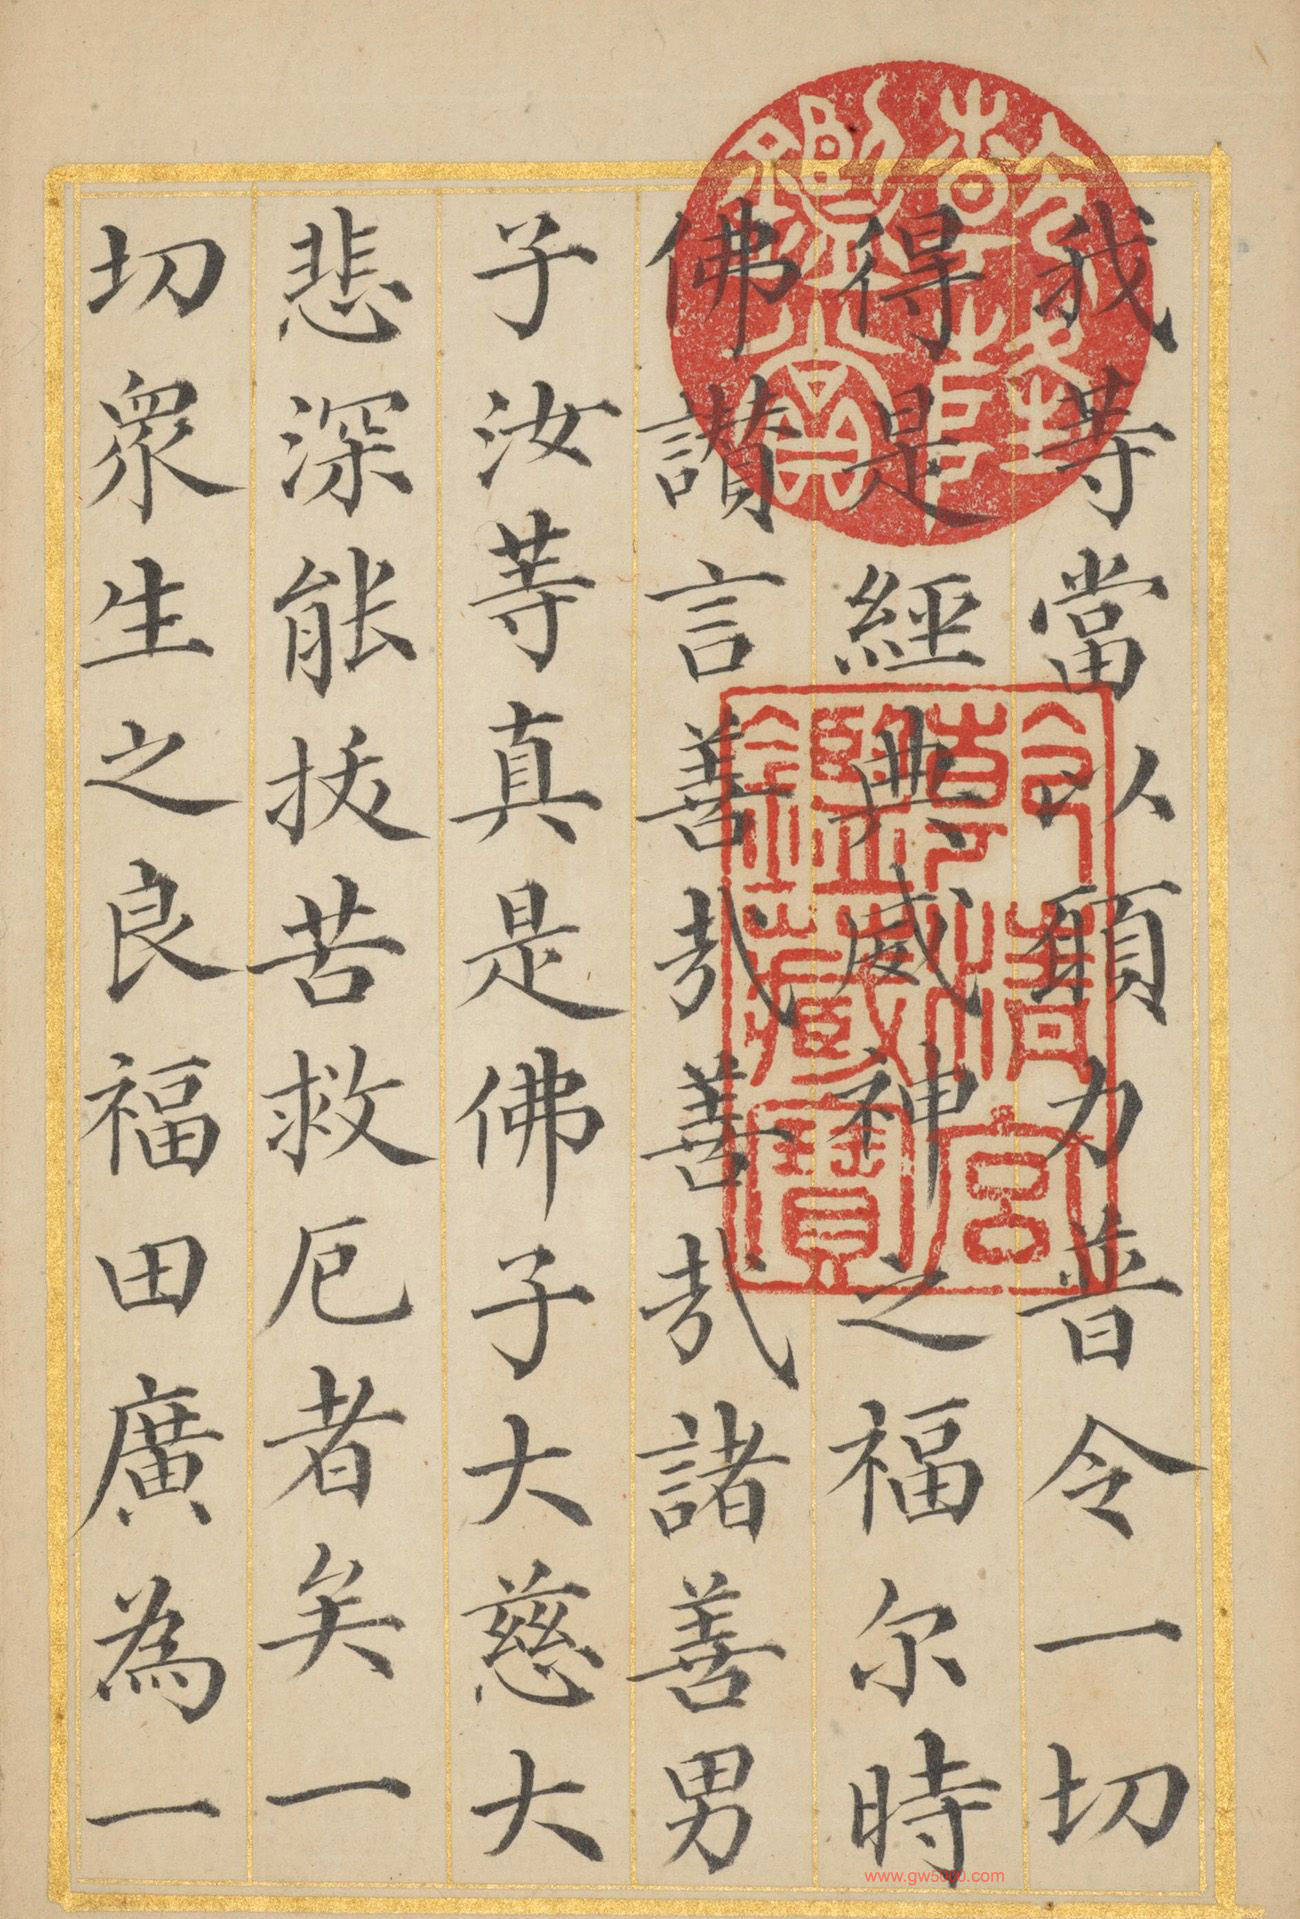 我等當以願力普令一切
得是經典威神之福尔時
佛讃言善哉善哉諸善男
子汝等真是佛子大慈大
悲深能拔苦救厄者矣一
切衆生之良福田廣為一
乾隆鑒賞
乾清宮鑒藏寶
www.gw5000.com